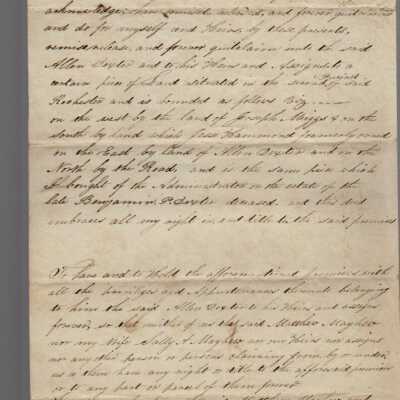 acknowledge, have remised, released, and forever quitclaimed
and do for myself and Heirs, by these presents,
remise, release, and forever quitclaim unto the said
Allen Dexter and to his Heirs and Assigns, to a
certain piece of Land situated in the second Precinct of said
Rochester and is bounded as follows Viz
on the west by the land of Joseph Meiggs & on the
South by land which Hammond formerly owned
on the East by land of Allen Dexter and on the
North by the Road, and is the same piece which
I bought of the Administrator on the estate of the
late Benjamin P. Dexter deceased, and this deed
embraces all my right in, and title to the said premises
To have and to Hold the aforementioned premises with
all the privileges and Appurtenances thereunto belonging
to him the said Allen Dexter to his Heirs and assigns
forever, so that neither of us the said Matthew Mayhew
nor my Wife Sally A Mayhew nor our Heirs nor assigns
nor any other person or persons claiming from by or under
us or them have any right or title to the aforesaid premises
or to any part or parcel of them forever